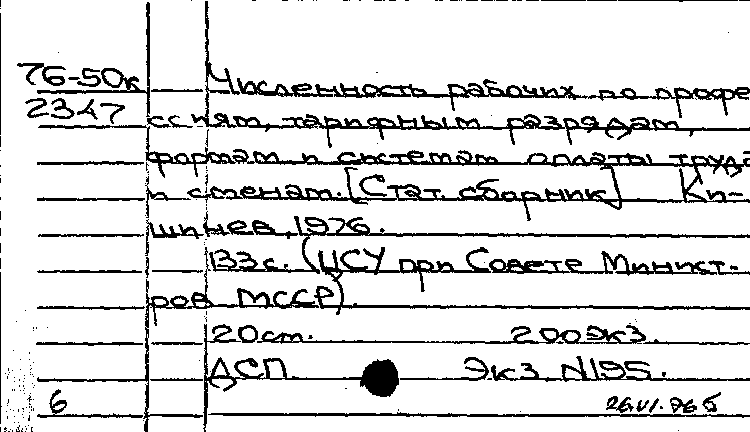 76-50к Численность рабочих по профе
2347 ссиям, тарифным разрядам,
формам и системам оплаты труда
и сменам. [Стат. сборник] Ки-
шинев, 1976.
133 с. (ЦСУ при Совете Минист-
ров МССР).
20 см. 200 экз.
ДСП. Экз. N195.
6